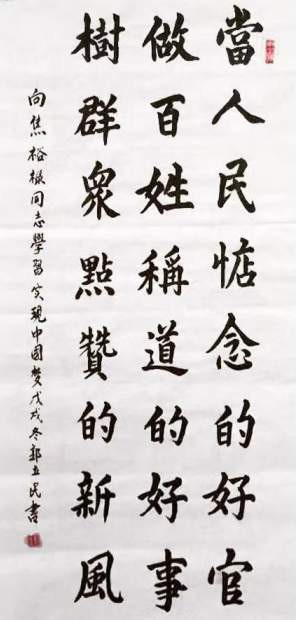 當人民惦念的好官
做百姓稱道的好事
樹群眾點贊的新風
向焦裕祿同志學習实現中國梦戊戌冬郭五民書